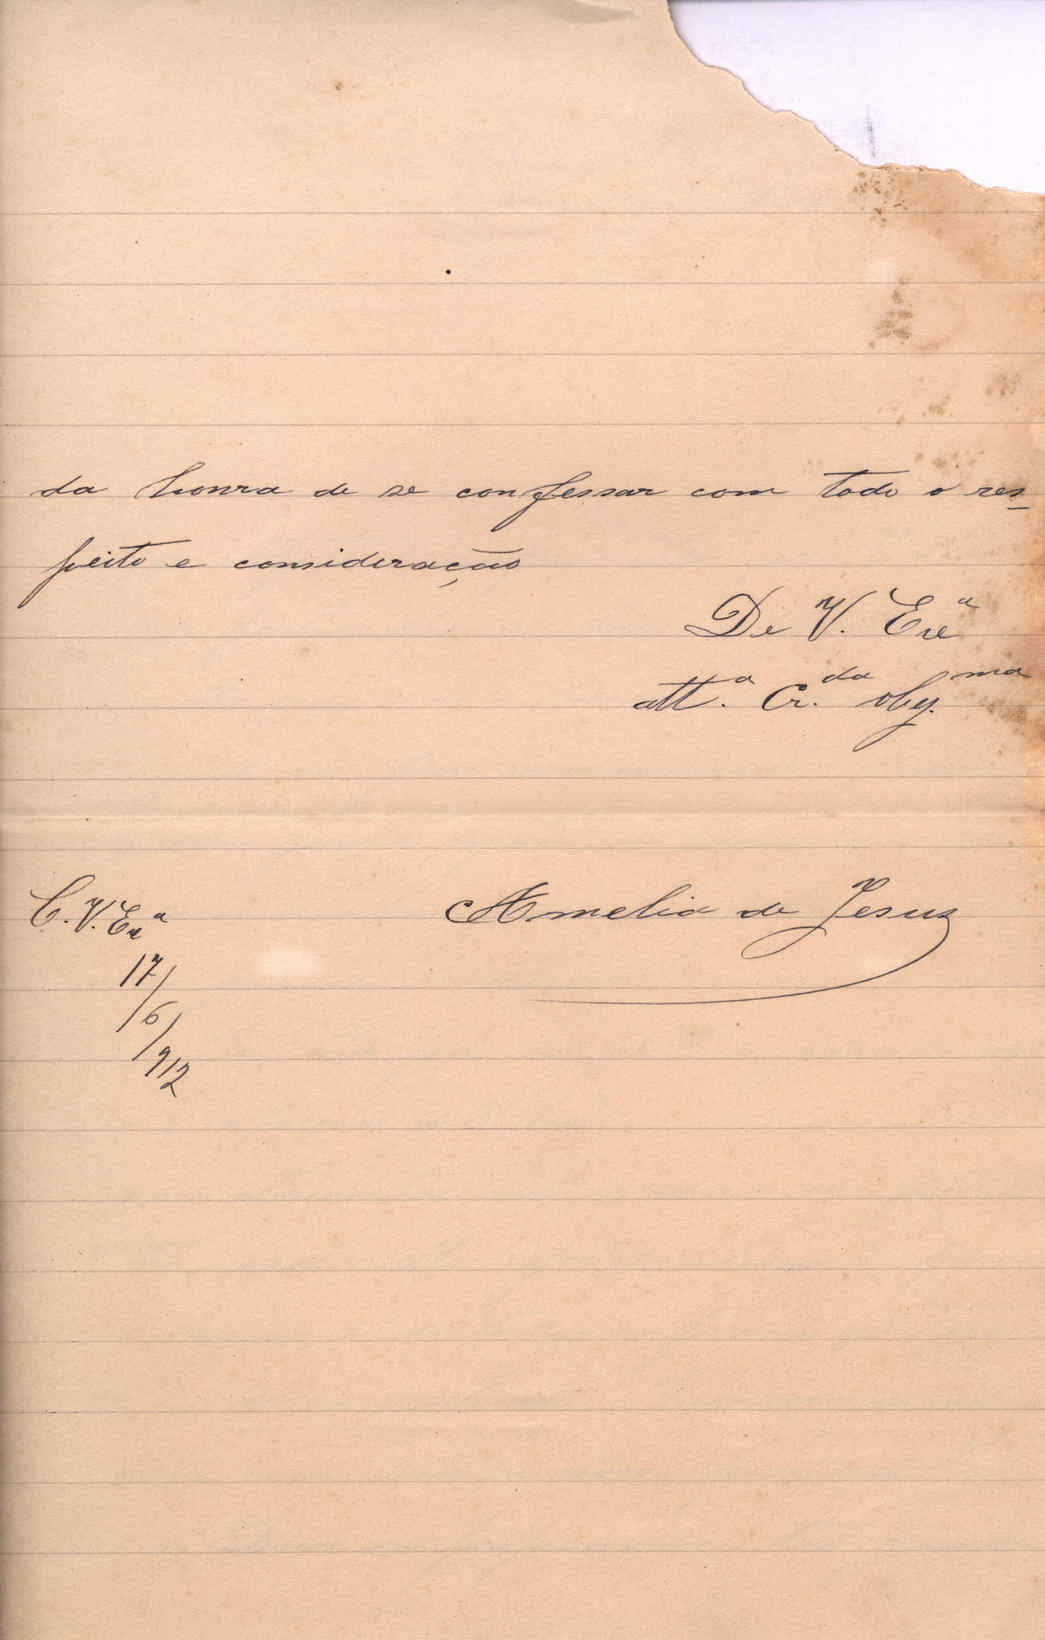 da honra de se confessar com todo o res-
peito e consideração
De V. Exª
attª. Cr.da obg.ma
C. V. Exª
Amelia de Jesus
17/
/6/
/912